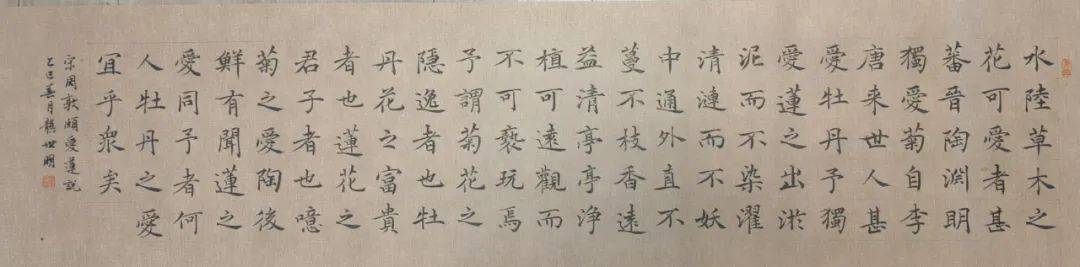 水陸草木之
花可愛者甚
蕃晉陶淵明
獨愛菊自李
唐来世人甚
愛牡丹予獨
愛蓮之出淤
泥而不染濯
清漣而不妖
中通外直不
蔓不枝香遠
益清亭亭净
植可遠觀而
不可褻玩焉
予謂菊花之
隱逸者也牡
丹花之富貴
者也蓮花之
君子者也噫
菊之愛陶後
鮮有聞蓮之
愛同予者何
人牡丹之愛
宜乎眾矣
宋周敦頤愛蓮説
乙巳春月世明